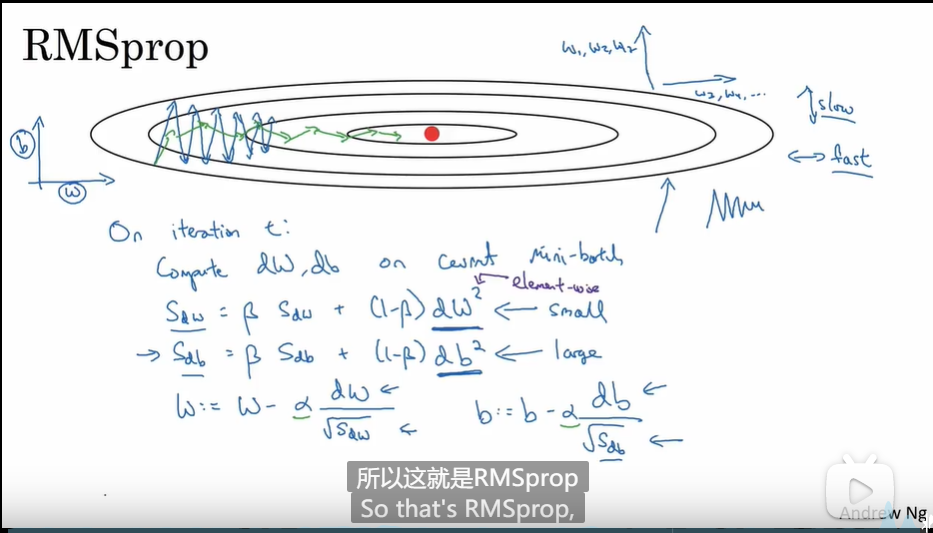 RMSprop
w₁, w₂, w₂
w₃, w₄, ...
slow
b
fast
w
On iteration t:
Compute dW, db on current mini-batch
element-wise
S_dw = β S_dw + (1-β) dw² ← small
→ S_db = β S_db + (1-β) db² ← large
w := w - α dw/√S_dw ← b := b - α db/√S_db ←
所以这就是RMSprop
So that's RMSprop,
Andrew Ng